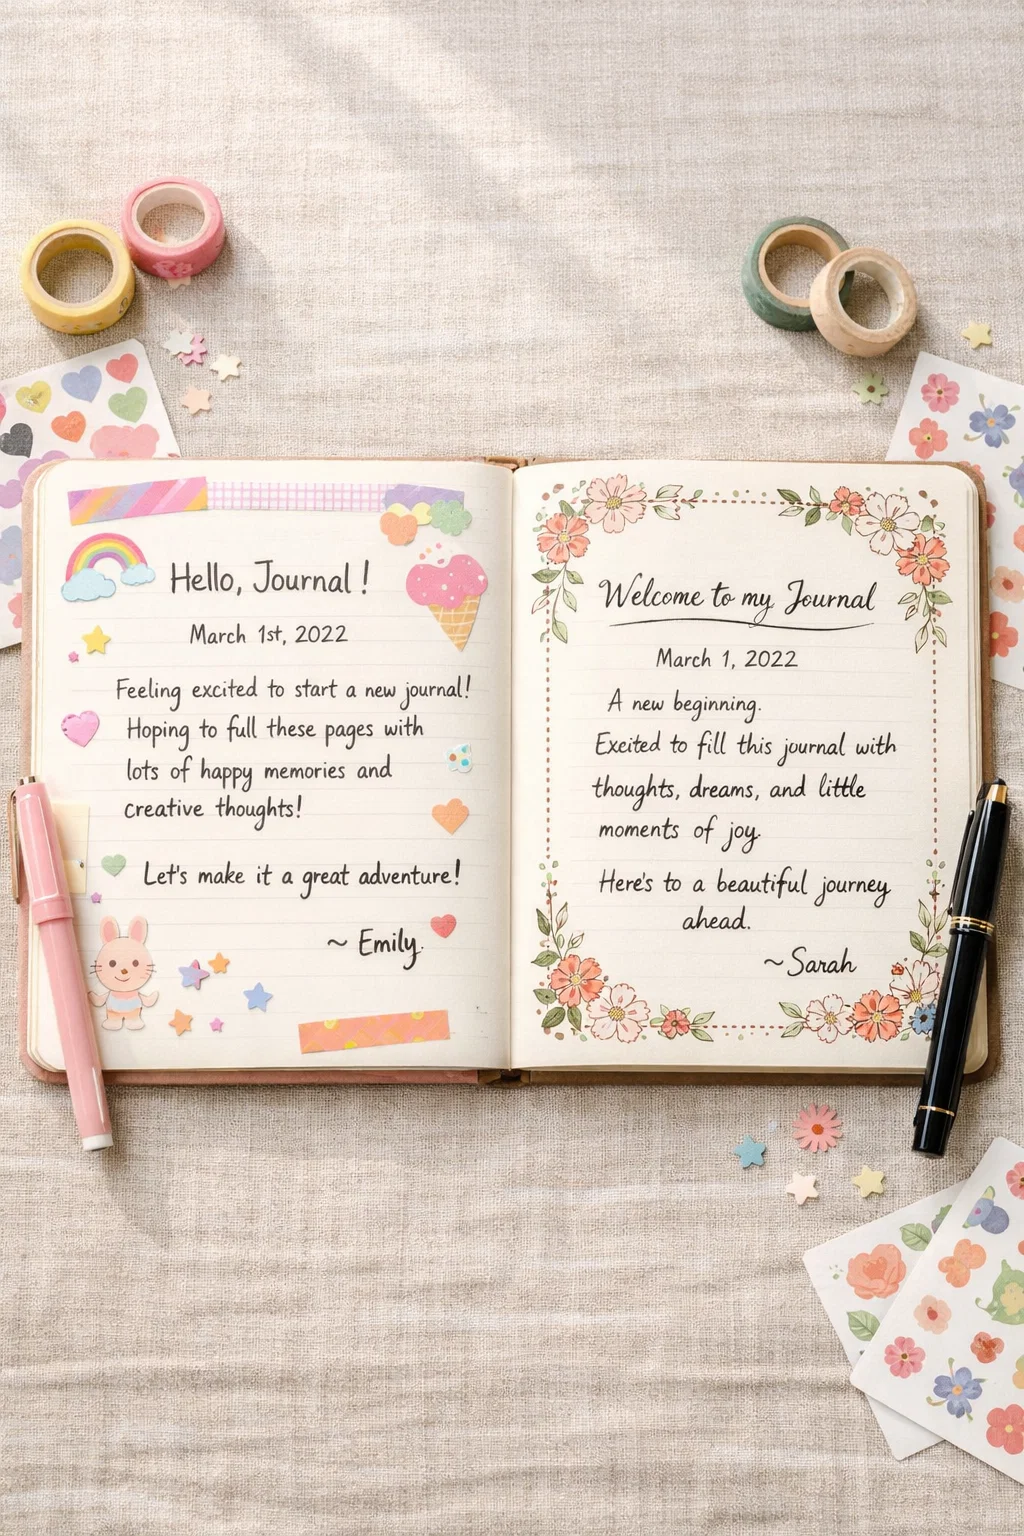 Hello, Journal!
March 1st, 2022
Feeling excited to start a new journal!
Hoping to full these pages with
lots of happy memories and
creative thoughts!
Let's make it a great adventure!
~ Emily.
Welcome to my Journal
March 1, 2022
A new beginning.
Excited to fill this journal with
thoughts, dreams, and little
moments of joy.
Here's to a beautiful journey
ahead.
~Sarah